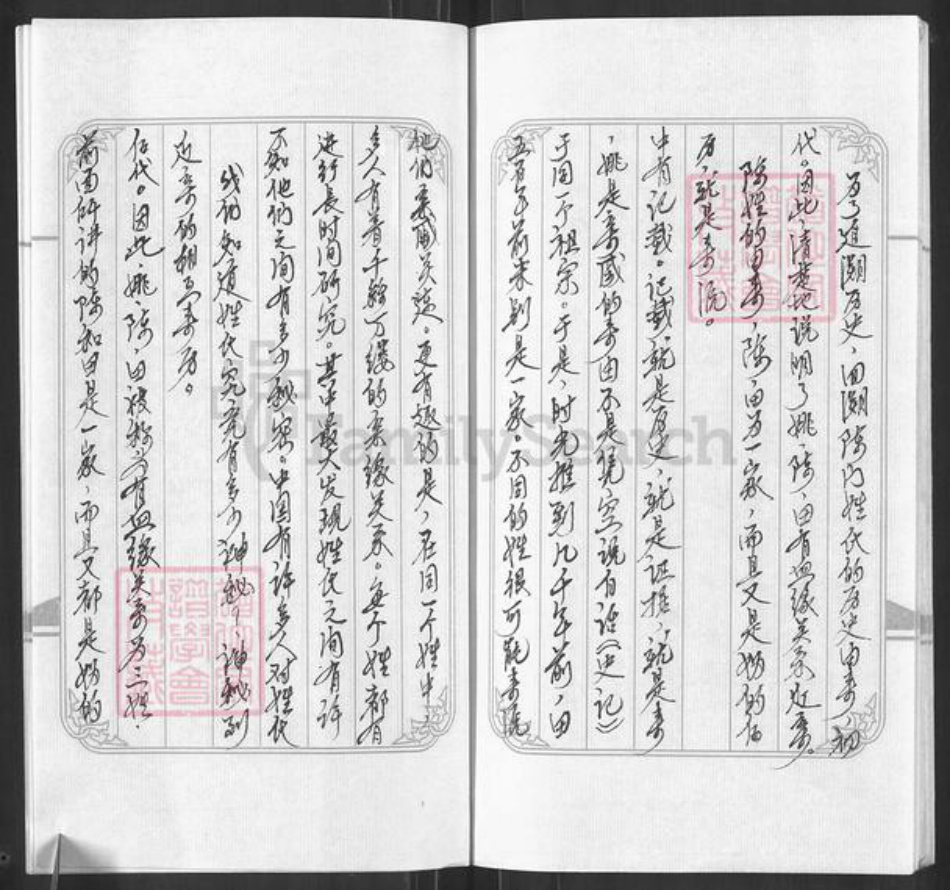 为了追溯历史，回溯陈门姓氏的历史由来，初
代。因此，清楚地说明了姚、陈、田有血缘关系近亲。
陈姓的由来，陈、田为一家，而且又是妫的后
历，就是来源。
中有记载。记载就是历史，就是证据，就是来
，姚是虞国的来由不是凭空说白话《史记》
于同一个祖宗。于是，时光推到几千年前，田
五百年前来到是一家。不同的姓很可能来源
他们亲戚关这。更有趣的是，在同一个姓中，
多人有着千丝万缕的亲缘关系。每个姓都有
进行长时间研究。其中最大发现姓氏之间有许
不知他们之间有多少秘密。中国有许多人对姓氏
我们知道姓氏究竟有多少神秘，神秘到
近亲的相互来历。
后代。因此，姚、陈、田被称为有血缘关系为三姓，
前面所讲的陈和田是一家，而且又都是妫的
FamilySearch